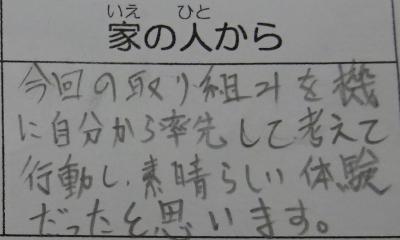 いえ ひと
家の人から
今回の取り組みを機
に自分から率先して考えて
行動し、素晴らしい体験
だったと思います。